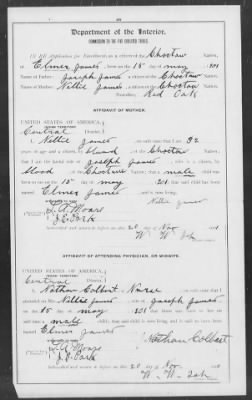 Department of the Interior,
COMMISSION TO THE FIVE CIVILIZED TRIBES.
IN RE Application for Enrollment, as a citizen of the Choctaw Nation,
of Elmer James, born on the 15 day of May, 1901
Name of Father: Joseph James a citizen of the Choctaw Nation.
Name of Mother: Nellie James a citizen of the Choctaw Nation.
Red Oak
AFFIDAVIT OF MOTHER.
UNITED STATES OF AMERICA,
Central District.
I, Nellie James, on oath state that I am 32
years of age and a citizen, by blood, of the Choctaw Nation;
that I am the lawful wife of Joseph James, who is a citizen, by
blood of the Choctaw Nation; that a male child was
born to me on the 15 day of May, 1901, that said child has been
named Elmer James, and is now living.
Nellie James
J. E. Park
Subscribed and sworn to before me this 20 day of Nov
AFFIDAVIT OF ATTENDING PHYSICIAN, OR MIDWIFE.
UNITED STATES OF AMERICA,
Central District.
I, Nathan Colbert, Nurse, on oath state that I
attended on Mrs. Nellie James, wife of Joseph James
on the 15 day of May, 1901, that there was born to her on said
date a male child; that said child is now living and is said to have been
named Elmer James
Nathan Colbert
J. E. Park
Subscribed and sworn to before me this 20 day of Nov